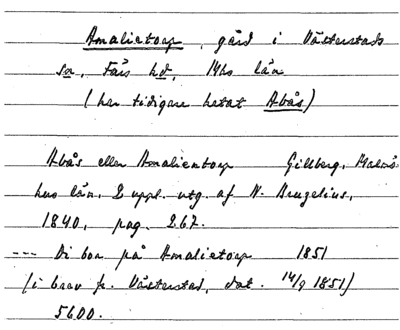 Amalietorp, gård i Västerstads
sn, Färs hd, Mhs län
(har tidigare hetat Abås)
Abås eller Amalientorp Gillberg, Malmö-
hus län, 2 uppl. utg. af N. Bruzelius,
1840, pag. 267.
--- Di bor på Amalietorp 1851
(i brev fr. Västerstad, dat. 14/9 1851)
5600.